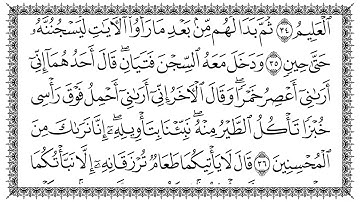 ٱلْعَلِيمُ ٣٤ ثُمَّ بَدَا لَهُم مِّنۢ بَعْدِ مَا رَأَوُا۟ ٱلْءَايَٰتِ لَيَسْجُنُنَّهُۥ
حَتَّىٰ حِينٍ ٣٥ وَدَخَلَ مَعَهُ ٱلسِّجْنَ فَتَيَانِ ۖ قَالَ أَحَدُهُمَآ إِنِّىٓ
أَرَىٰنِىٓ أَعْصِرُ خَمْرًا ۖ وَقَالَ ٱلْءَاخَرُ إِنِّىٓ أَرَىٰنِىٓ أَحْمِلُ فَوْقَ رَأْسِى
خُبْزًا تَأْكُلُ ٱلطَّيْرُ مِنْهُ ۖ نَبِّئْنَا بِتَأْوِيلِهِۦٓ ۖ إِنَّا نَرَىٰكَ مِنَ
ٱلْمُحْسِنِينَ ٣٦ قَالَ لَا يَأْتِيكُمَا طَعَامٌ تُرْزَقَانِهِۦٓ إِلَّا نَبَّأْتُكُمَا